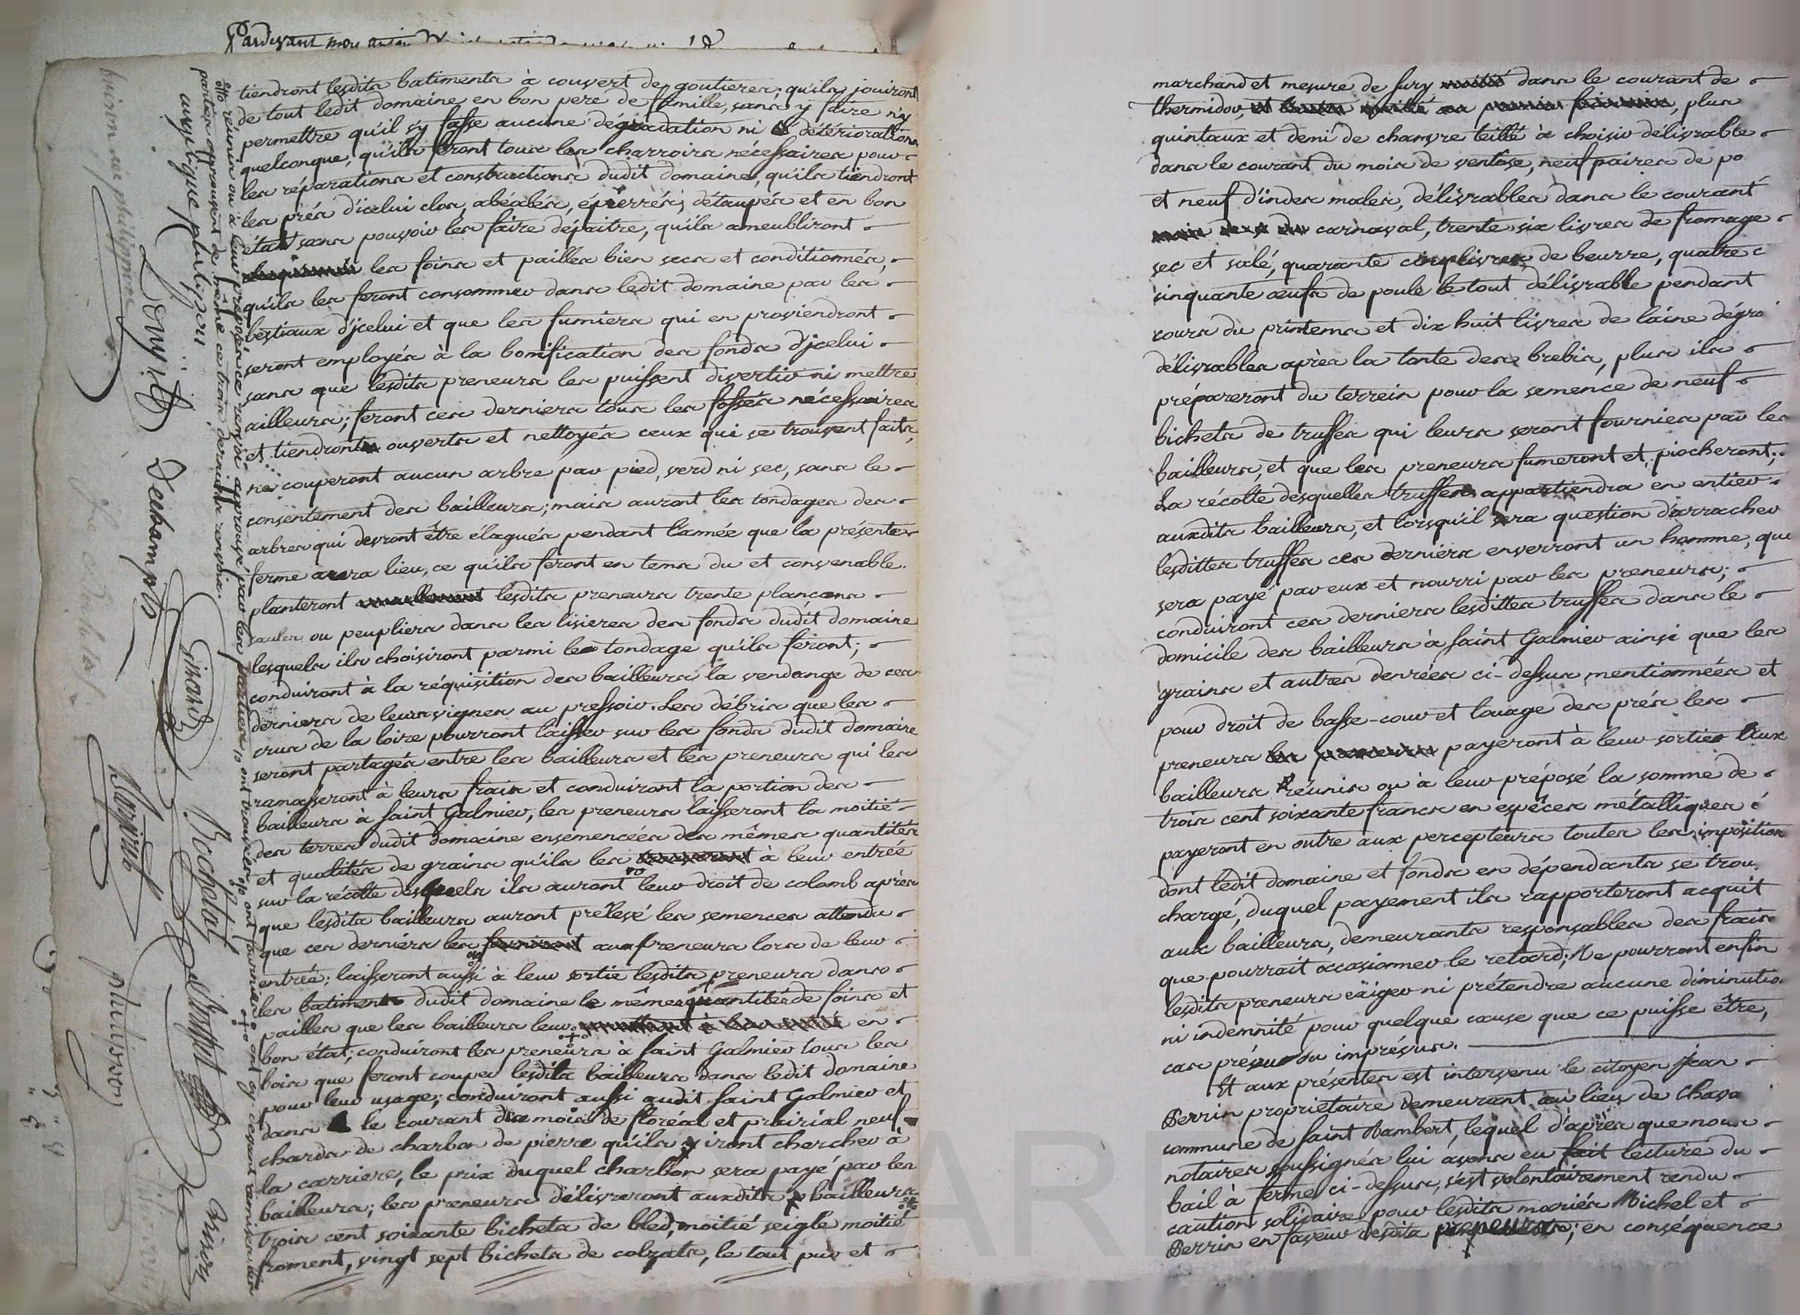 Pardevant
tiendront lesdits batiments à couvert de goutieres; qu'ils jouiront
de tout ledit domaine en bon pere de famille, sans y faire n'y
permettre qu'il s'y fasse aucune dégradation ni détérioration
quelconque, qu'ils feront tous les charroirs nécessaires pour
les réparations et constructions dudit domaine, qu'ils tiendront
les prés d'icelui clos, abéalés, épierrés, détaupés et en bon
état sans pouvoir les faire dépaitre, qu'ils ameubliront
les foins et pailles bien secs et conditionnés,
qu'ils les feront consommer dans ledit domaine par les
bestiaux d'jcelui et que les fumiers qui en proviendront
seront employés à la bonification des fonds d'jcelui
sans que lesdits preneurs les puissent divertir ni mettre
ailleurs; feront ces derniers tous les fossés nécessaires
et tiendront ouverts et nettoyés ceux qui se trouvent faits,
ne couperont aucun arbre par pied, verd ni sec, sans le
consentement des bailleurs; mais auront les tondages des
arbres qui devront être élagués pendant l'année que la présente
ferme aura lieu, ce qu'ils feront en tems du et convenable.
planteront lesdits preneurs trente plançons
saules ou peupliers dans les lisieres des fonds dudit domaine
lesquels ils choisiront parmi le tondage qu'ils feront;
conduiront à la réquisition des bailleurs la vendange de ces
derniers de leurs vignes au pressoir. Les débris que les
crus de la loire pourront laisser sur les fonds dudit domaine
seront partagés entre les bailleurs et les preneurs qui les
ramasseront à leurs frais et conduiront la portion des
bailleurs à saint Galmier, les preneurs laisseront la moitié
des terres dudit domaine ensemencées des mêmes quantités
et qualités de grains qu'ils les à leur entrée
sur la récolte desquels ils auront leur droit de colomb après
que lesdits bailleurs auront prélevé les semences attendu
que ces derniers les aux preneurs lors de leur
entrée; laisseront aussi à leur sortie lesdits preneurs dans
les batiments dudit domaine le même quantité de foins et
pailles que les bailleurs leur en
bon état; conduiront les preneurs à saint Galmier tous les
bois que feront couper lesdits bailleurs dans ledit domaine
pour leur usage; conduiront aussi audit saint Galmier et
dans le courant des mois de floréal et prairial neuf
chards de charbon de pierre qu'ils iront chercher à
la carriere, le prix duquel charbon sera payé par les
bailleurs; les preneurs délivreront auxdits bailleurs
trois cent soixante bichets de bled, moitié seigle moitié
froment, vingt sept bichets de colzats, le tout pur et
Louison
Dechamps
Girard
Rochotat
phulippon
marchand et mesure de sury dans le courant de
thermidor, plus
quintaux et demi de chanvre teillé à choisir délivrable
dans le courant du mois de ventose, neuf paires de po
et neuf d'indes males, délivrables dans le courant
carnaval, trente six livres de fromage
sec et salé, quarante cinq livres de beurre, quatre c
cinquante œufs de poule le tout délivrable pendant
cours du printems et dix huit livres de laine dégra
délivrables après la tonte des brebis, plus ils
prépareront du terrein pour la semence de neuf
bichets de truffes qui leurs seront fournies par les
bailleurs, et que les preneurs fumeront et piocheront;
La récolte desquelles truffes appartiendra en entier
auxdits bailleurs, et lorsqu'il sera question d'arracher
lesdittes truffes ces derniers enverront un homme, qui
sera payé par eux et nourri par les preneurs;
conduiront ces derniers lesdittes truffes dans le
domicile des bailleurs à saint Galmier ainsi que les
grains et autres denrées ci-dessus mentionnées et
pour droit de basse-cour et louage des prés les
preneurs payeront à leur sortie aux
bailleurs réunis ou à leur préposé la somme de
trois cent soixante francs en espéces métalliques
payeront en outre aux percepteurs toutes les imposition
dont ledit domaine et fonds en dépendants se trou.
chargé, duquel payement ils rapporteront acquit
aux bailleurs, demeurants responsables des frais
que pourrait occasionner le retard; Ne pourront enfin
lesdits preneurs exiger ni prétendre aucune diminutio
ni indemnité pour quelque cause que ce puisse être,
cas prévus ou imprévus.
Et aux présentes est intervenu le citoyen jean
Perrin propriétaire demeurant au lieu de Chava
commune de saint Rambert, lequel d'après que nous
notaires soussignés lui avons eu fait lecture du
bail à ferme ci-dessus, s'est volontairement rendu
caution solidaire pour lesdits mariés Michel et
Perrin en faveur desdits preneurs; en conséquence